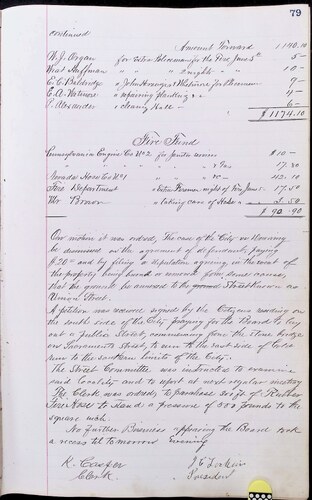 79
continued
Amount Forward 1140.10
W. J. Organ for Extra Policeman for the Fire June 5th 5 -
Neal Huffman " " " 2 nights " 10 -
E. C. Baldridge 9 -
E. A. Watmore " repairing 4 -
P. Alexander " cleaning Hall 6 -
$ 1174.10
Fire Fund
Pennsylvania Engine Co No 2 for Janitor services $ 10 -
" " " " " Gas 17.30
Nevada Hose Co No 1 " " &c 42.10
Fire Department " Extra Firemen night of Fire June 5 17.50
Thos " taking care of Hose 3.50
$ 90.90
On motion it was ordered, The case of the City vs
be dismissed on the agreement of defendants paying
$20 00 and by filing a stipulation agreeing, in the event of
the property being burned or removed from some cause,
that the ground be annexed to the ground Street known as
Union Street.
A petition was received signed by the Citizens residing on
the south side of the City praying for the Board to lay
out a Public Street, commencing from the Stone bridge
on Sacramento Street, to run to the east side of
run to the southern limits of the City.
The Street Committee was instructed to examine
said locality and to report at next regular meeting
The Clerk was ordered to purchase 300 ft of Rubber
Fire Hose to stand a pressure of 300 pounds to the
square inch.
No further Business appearing the Board took
a recess til tomorrow evening
K. Casper
Clerk President